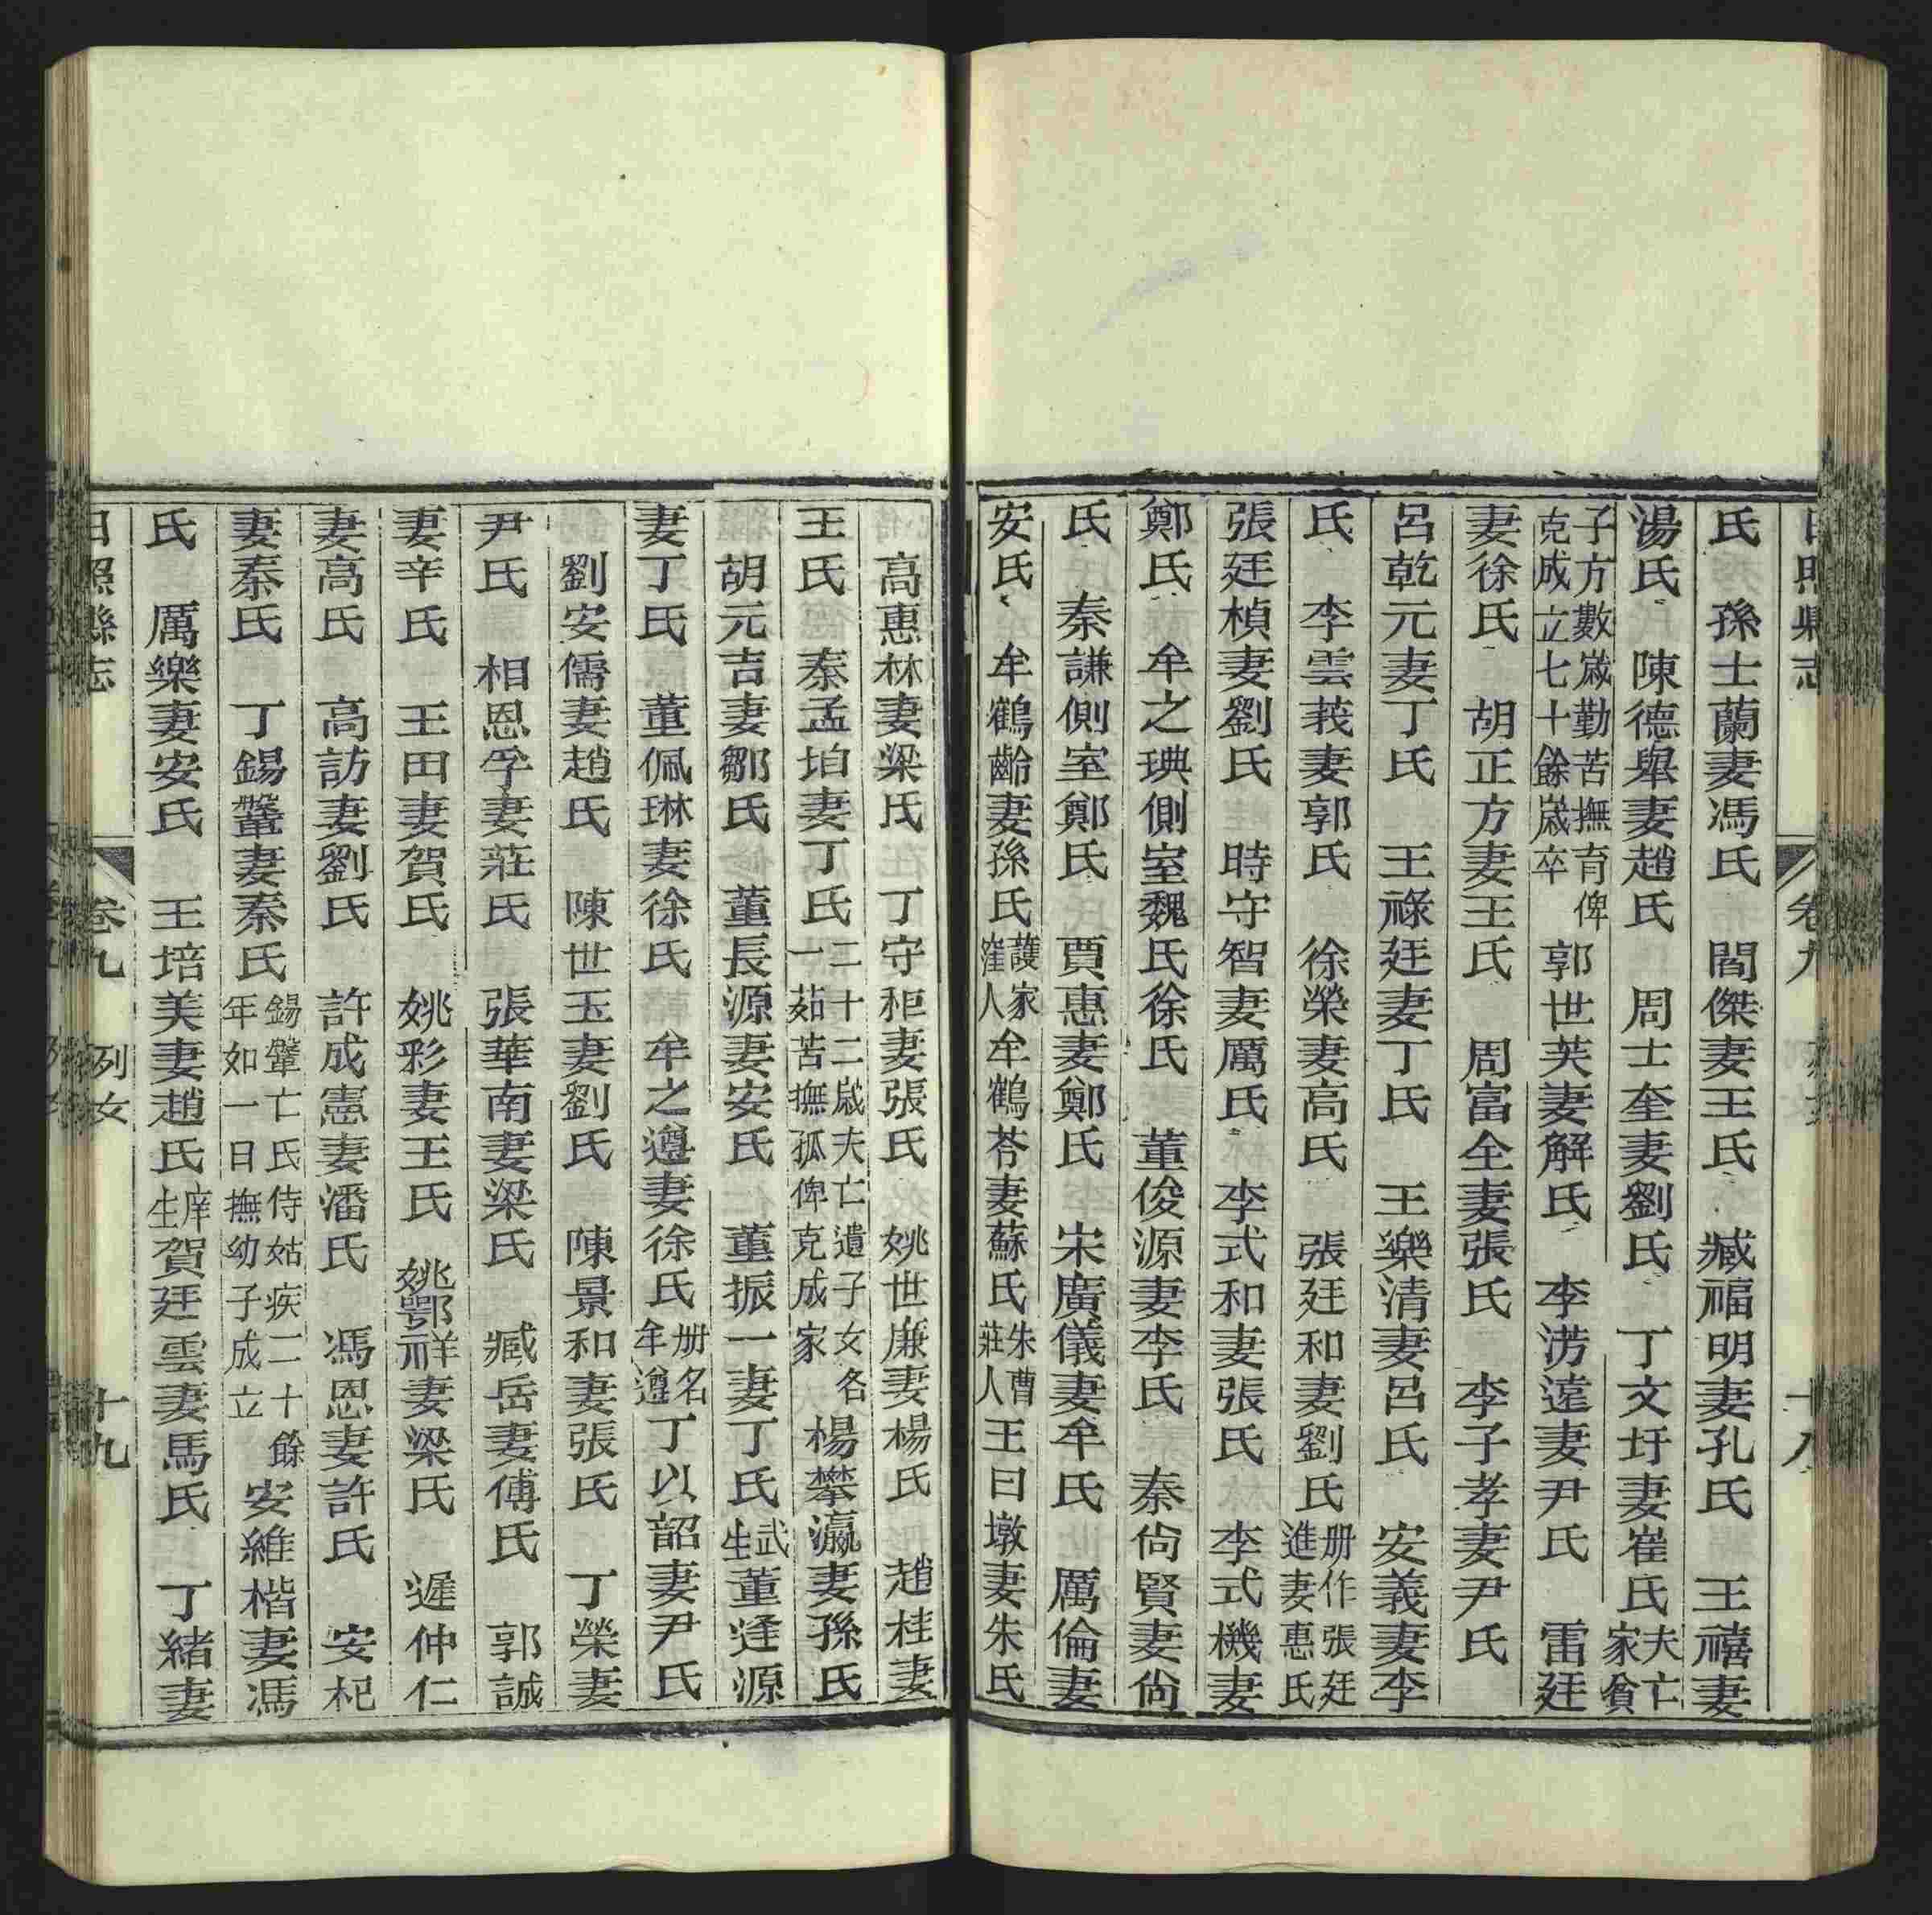 日照縣志 卷九 十八
氏 孫士蘭妻馮氏 閻傑妻王氏 臧福明妻孔氏 王禧妻
湯氏 陳德舉妻趙氏 周士奎妻劉氏 丁文圩妻崔氏夫亡家貧
子方數歲勤苦撫育俾克成立七十餘歲卒 郭世芙妻解氏 李涝遠妻尹氏 雷廷
妻徐氏 胡正方妻王氏 周富全妻張氏 李子孝妻尹氏
呂乾元妻丁氏 王祿廷妻丁氏 王樂清妻呂氏 安義妻李
氏 李雲莪妻郭氏 徐榮妻高氏 張廷和妻劉氏册作張廷進妻惠氏
張廷楨妻劉氏 時守智妻厲氏 李式和妻張氏 李式機妻
鄭氏 牟之璵側室魏氏徐氏 董俊源妻李氏 秦尙賢妻尙
氏 秦謙側室鄭氏 賈惠妻鄭氏 宋廣儀妻牟氏 厲倫妻
安氏 牟鶴齡妻孫氏護家窪人 牟鶴苓妻蘇氏朱曹莊人 王曰墩妻朱氏
高惠林妻梁氏 丁守秬妻張氏 姚世廉妻楊氏 趙桂妻
王氏 秦孟珀妻丁氏二十二歲夫亡遺子女各一茹苦撫孤俾克成家 楊攀瀛妻孫氏
胡元吉妻鄒氏 董長源妻安氏 董振一妻丁氏武生 董逢源
妻丁氏 董佩琳妻徐氏 牟之遵妻徐氏册名牟遵 丁以韶妻尹氏
劉安儒妻趙氏 陳世玉妻劉氏 陳景和妻張氏 丁榮妻
尹氏 相恩孚妻莊氏 張華南妻梁氏 臧岳妻傅氏 郭誠
妻辛氏 王田妻賀氏 姚彩妻王氏 姚鄂祥妻梁氏 遲仲仁
妻高氏 高訪妻劉氏 許成憲妻潘氏 馮恩妻許氏 安杞
妻秦氏 丁錫鞶妻秦氏錫鞶亡氏侍姑疾二十餘年如一日撫幼子成立 安維楷妻馮
氏 厲樂妻安氏 王培美妻趙氏庠生 賀廷雲妻馬氏 丁緒妻
日照縣志 卷九 列女 十九